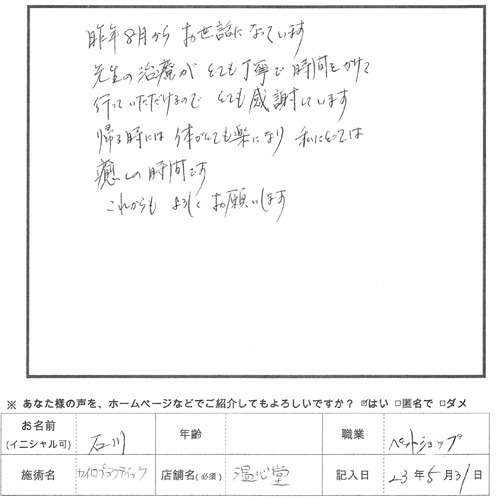 昨年8月から お世話になっています
先生の治療が とても丁寧で 時間をかけて
行っていただけるので とても感謝しています
帰る時には 体がとても楽になり 私にとっては
癒しの時間です
これからも よろしく お願いします
※ あなた様の声を、ホームページなどでご紹介してもよろしいですか？ ☑はい □匿名で □ダメ
お名前 (イニシャル可) 石川 年齢 職業 ペットショップ
施術名 カイロプラクティック 店舗名(必須) 温心堂 記入日 23年5月31日